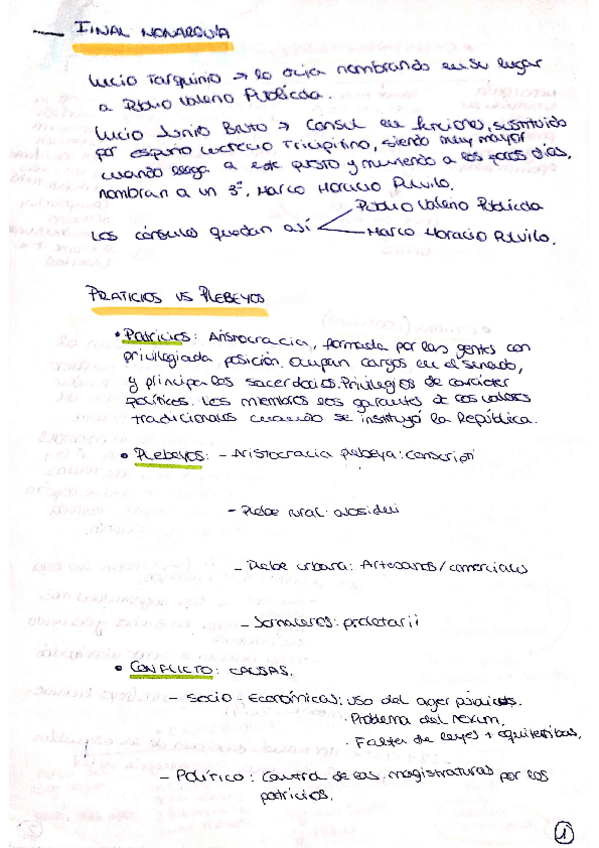 FINAL MONARQUÍA
Lucio Tarquinio → lo deja nombrando en su lugar
a Publio Valerio Publícola.
Lucio Junio Bruto → Cónsul en funciones, sustituido
por espurio Lucrecio Tricipitino, siendo muy mayor
cuando llega a este puesto y muriendo a los pocos días,
nombran a un 3º, Marco Horacio Pulvilo.
Publio Valerio Publícola
Los cónsules quedan así
Marco Horacio Pulvilo.
PATRICIOS VS PLEBEYOS
• Patricios: Aristocracia, formada por las gentes con
privilegiada posición. Ocupan cargos en el senado,
y principales sacerdocios. Privilegios de carácter
políticos. Los miembros los garantes de los valores
tradicionales cuando se instituyó la República.
• Plebeyos: - Aristocracia plebeya: conscripti
- Plebe rural:
- Plebe urbana: Artesanos/comerciales
- Jornaleros: proletarii
• CONFLICTO: CAUSAS.
- Socio-Económicas: uso del ager publicus.
· Problema del nexum.
· Falta de leyes + equitativas.
- Político: Control de las magistraturas por los
patricios.
1